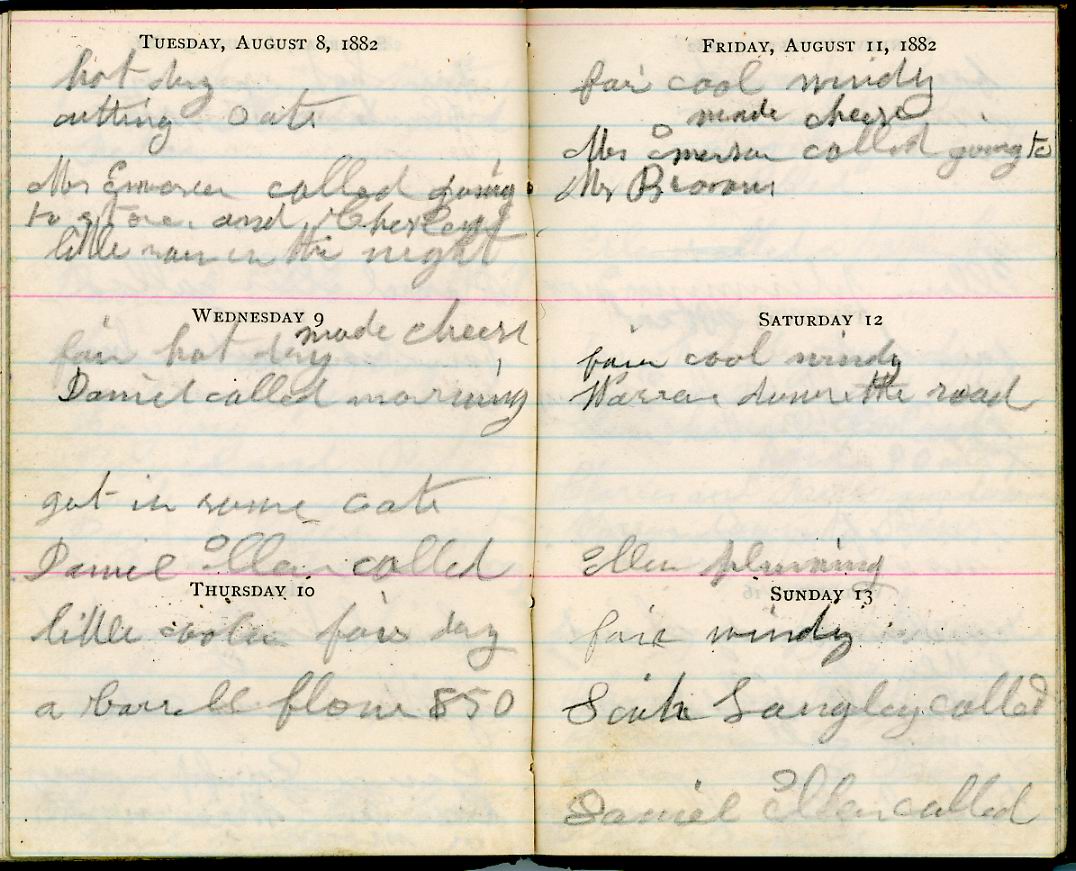 TUESDAY, AUGUST 8, 1882
hot day
cutting Oats
Mrs Emerson called going
to store. and
little rain in the night
WEDNESDAY 9
made cheese
fair hot day
Daniel called morning
got in some oats
Daniel Ellen called
THURSDAY 10
little cooler fair day
a barrell flour 850
FRIDAY, AUGUST 11, 1882
fair cool windy
made cheese
Mrs Emerson called going to
Mr Browns
SATURDAY 12
fair cool windy
Warren down the road
Ellen plumming
SUNDAY 13
fair windy
Langley called
Daniel Ellen called